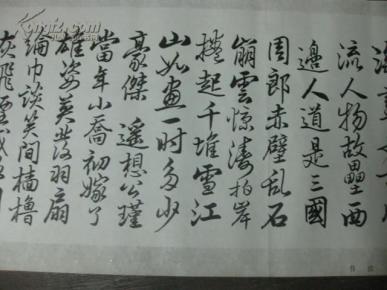 流人物故壘西
邊人道是三國
周郎赤壁乱石
崩雲惊濤拍岸
捲起千堆雪江
山如畫一时多少
豪傑 遥想公瑾
當年小喬初嫁了
雄姿英发羽扇
綸巾談笑间檣櫓
灰飛